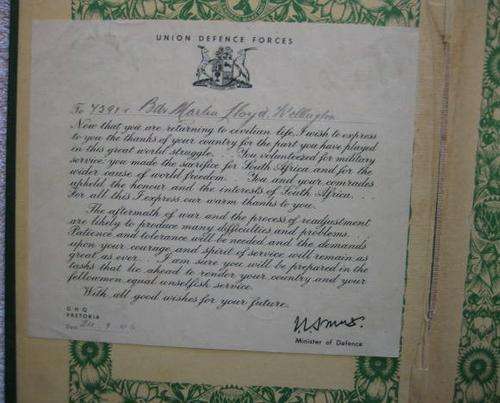 UNION DEFENCE FORCES
To Bdr. Lloyd Wellington
Now that you are returning to civilian life, I wish to express
to you the thanks of your country for the part you have played
in this great world struggle. You volunteered for military
service; you made the sacrifice for South Africa and for the
wider cause of world freedom. You and your comrades
upheld the honour and the interests of South Africa.
For all this I express our warm thanks to you.
The aftermath of war and the process of readjustment
are likely to produce many difficulties and problems.
Patience and tolerance will be needed and the demands
upon your courage and spirit of service will remain as
great as ever. I am sure you will be prepared in the
tasks that lie ahead to render your country and your
fellowmen equal unselfish service.
With all good wishes for your future.
G H Q
PRETORIA
Minister of Defence